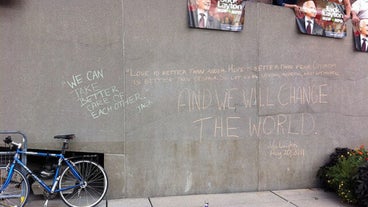 "WE CAN
TAKE
BETTER
CARE OF
EACH OTHER."
"LOVE IS BETTER THAN ANGER. HOPE IS BETTER THAN FEAR. OPTIMISM
IS BETTER THAN DESPAIR. SO LET US BE LOVING, HOPEFUL, AND OPTIMISTIC.
AND WE WILL CHANGE
THE WORLD.